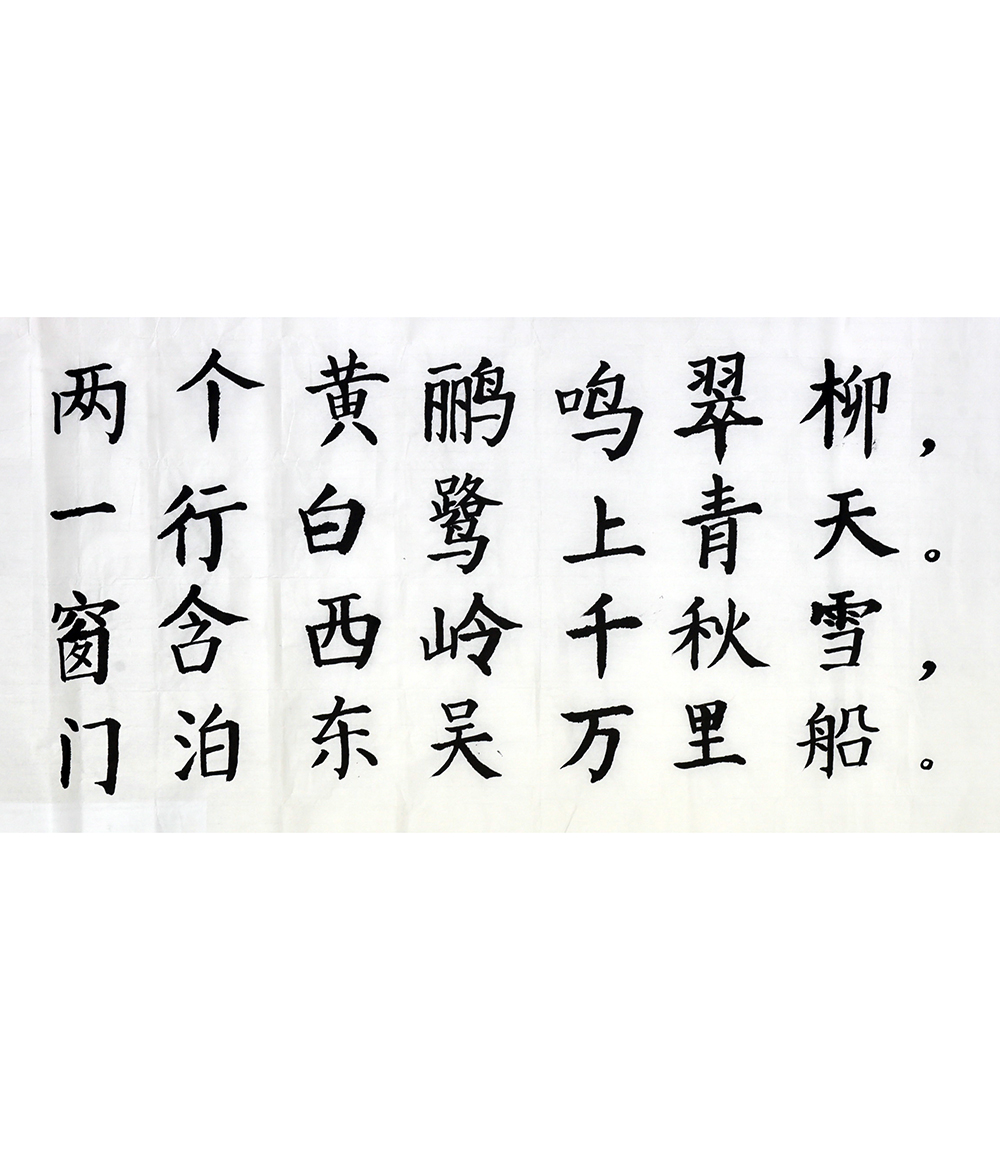 两个黄鹂鸣翠柳，
一行白鹭上青天。
窗含西岭千秋雪，
门泊东吴万里船。